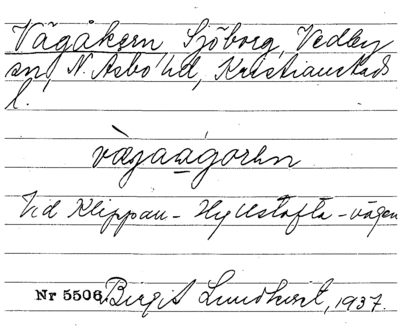 Vägåkern, Sjöborg, Vedby
sn, N. Åsbo hd, Kristianstads
l.
Vid Klippan - Hyllstofta - vägen
Nr 5506 Birgit Lundkvist, 1937.